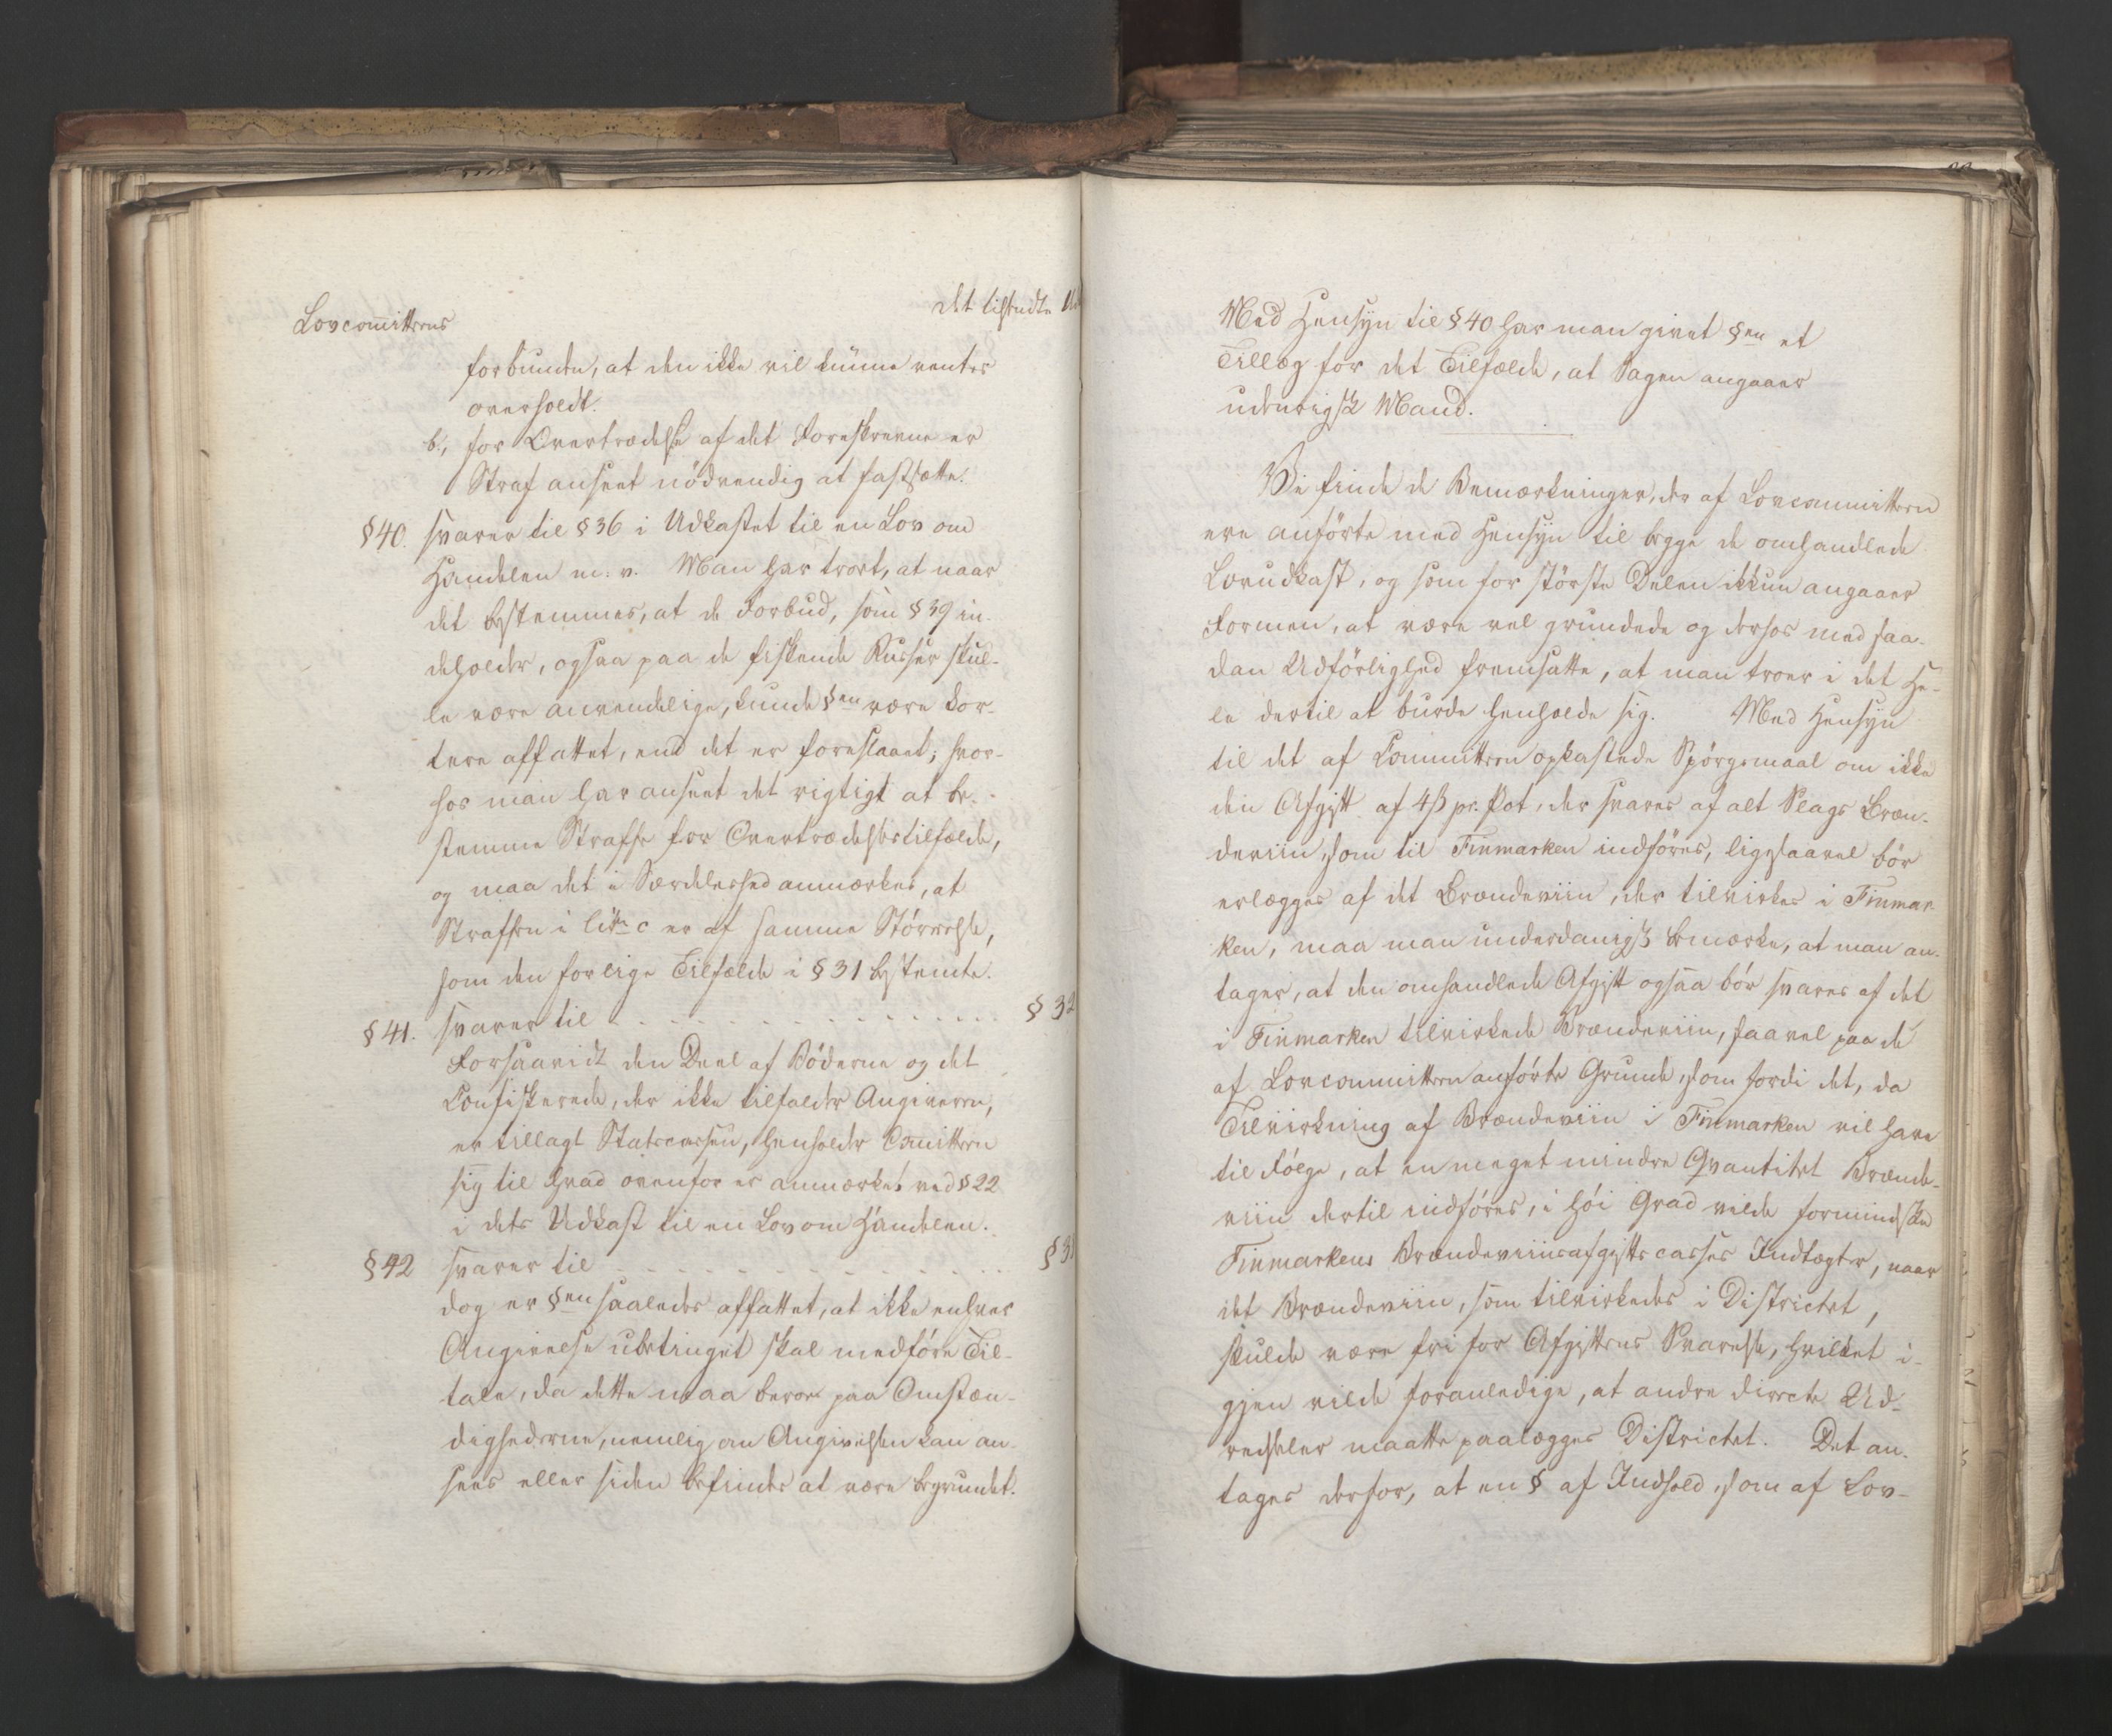 Lovcom̅itteens
det tilsendte Ud
forbunden, at den ikke vil kunne ventes
overholdt.
b., for Overtrædelse af det Foreskrevne er
Straf anseet nödvendig at fastsætte.
§ 40. svarer til § 36 i Udkastet til en Lov om
Handelen m. v. Man har troet, at naar
det bestemmes, at de Forbud, som § 39 in-
deholder, ogsaa paa de fiskende Russer skul-
le være anvendelige, kunde §en være kor-
tere affattet, end det er foreslaaet; hvor-
hos man har anseet det rigtigt at be-
stemme Straffe for Overtrædelsestilfælde,
og maa det i Særdeleshed anmærkes, at
Straffen i litr. c er af samme Störrelse,
som den for lige Tilfælde i § 31 bestemte.
§ 41. svarer til . . . . . . . . . . . . . . § 32
Forsaavidt den Deel af Böderne og det
Confiskerede, der ikke tilfalder Angiveren,
er tillagt Statscassen, henholder Com̅itteen
sig til hvad ovenfor er anmærket ved § 22
i dets Udkast til en Lov om Handelen.
§ 42 svarer til . . . . . . . . . . . . . . § 3
dog er §en saaledes affattet, at ikke enhver
Angivelse ubetinget skal medföre Til-
tale, da dette maa beroe paa Omstæn-
dighederne, nemlig om Angivelsen kan an-
sees eller siden befindes at være begrundet.
Med Hensyn til § 40 har man givet §en et
Tillæg for det Tilfælde, at Sagen angaaer
udenrigsk Mand.
Vi finde de Bemærkninger, der af Lovcommitteen
ere anförte med Hensyn til begge de omhandlede
Lovudkast, og som for störste Delen ikkun angaaer
Formen, at være vel grundede og derhos med saa-
dan Udförlighed fremsatte, at man troer i det He-
le dertil at burde henholde sig. Med Hensyn
til det af Committeen opkastede Spörgsmaal om ikke
den Afgift af 4 ß pr. Pot, der svares af alt Slags Bræn-
deviin, som til Finmarken indföres, ligesaavel bör
erlægges af det Brændeviin, der tilvirkes i Finmar-
ken, maa man underdanigst bemærke, at man an-
tager, at den omhandlede Afgift ogsaa bör svares af det
i Finmarken tilvirkede Brændeviin, saavel paa de
af Lovcommitteen anförte Grunde, som fordi det, da
Tilvirkning af Brændeviin i Finmarken vil have
til Fölge, at en meget mindre Qvantitet Brænde-
viin dertil indföres, i höi Grad vilde formindske
Finmarkens Brændeviinsafgifts casses Indtægter, naar
det Brændeviin, som tilvirkedes i Districtet,
skulde være fri for Afgiftens Svarelse, hvilket i-
gjen vilde foranledige, at andre directe Ud-
redsler maatte paalægges Districtet. Det an-
tages derfor, at en § af Indhold, som af Lov-